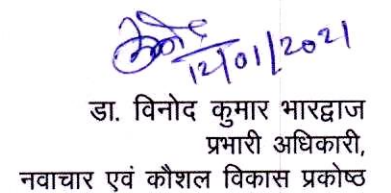 12/01/2021
डा. विनोद कुमार भारद्वाज
प्रभारी अधिकारी,
नवाचार एवं कौशल विकास प्रकोष्ठ